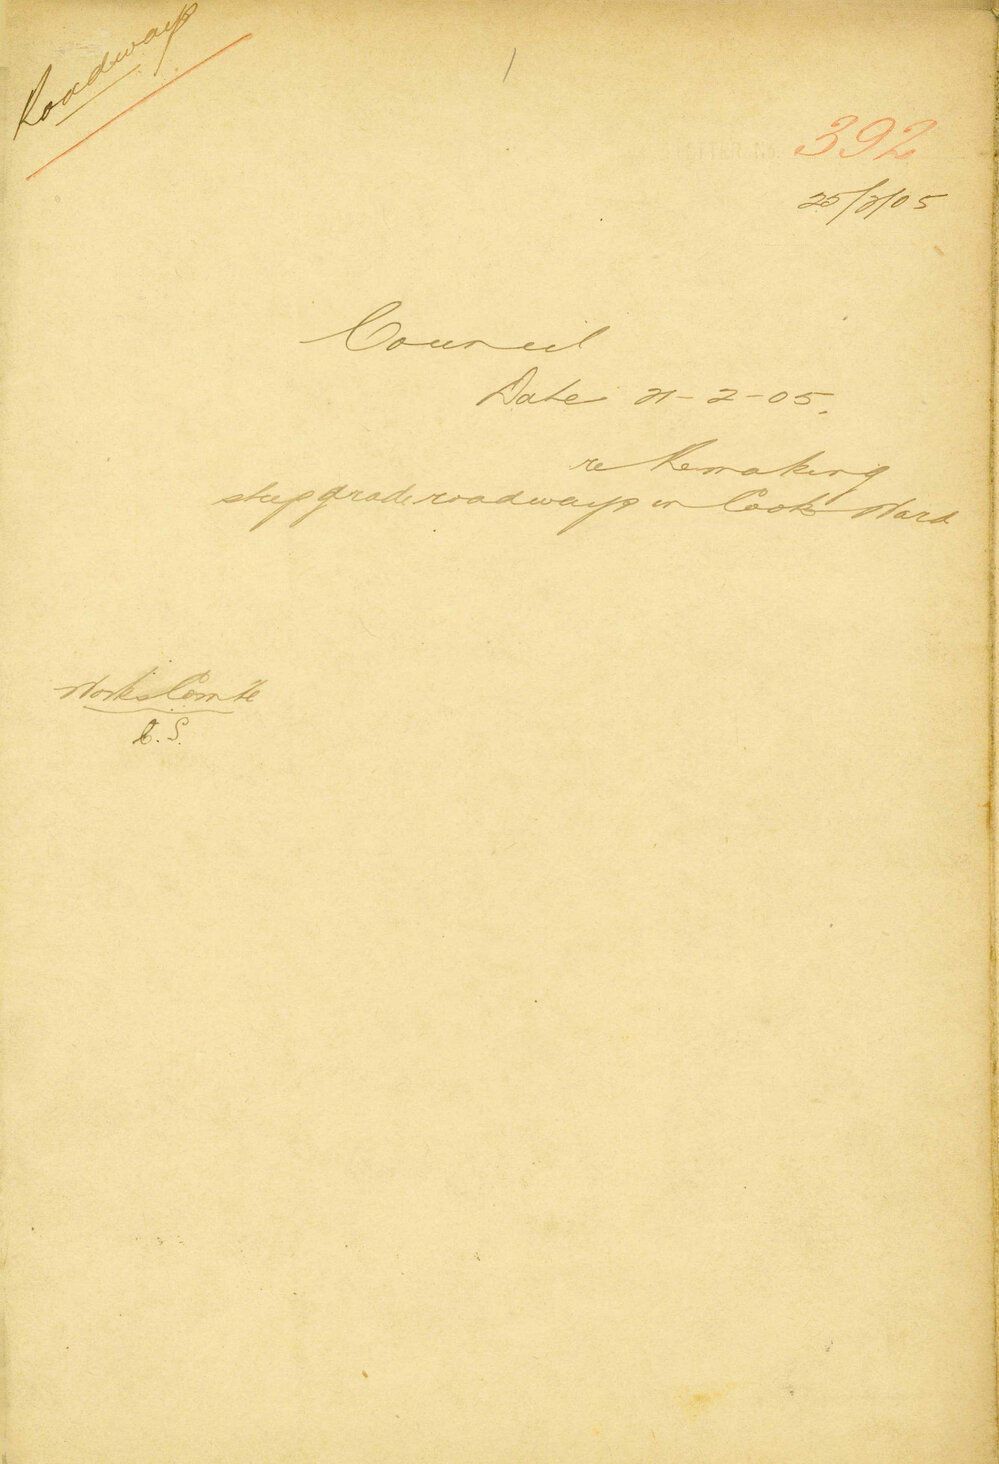 Roadways
392
25/2/05
Council
Date 21-2-05.
re Remaking
steep grade roadways in Cook Ward
Works Comte
C.S.